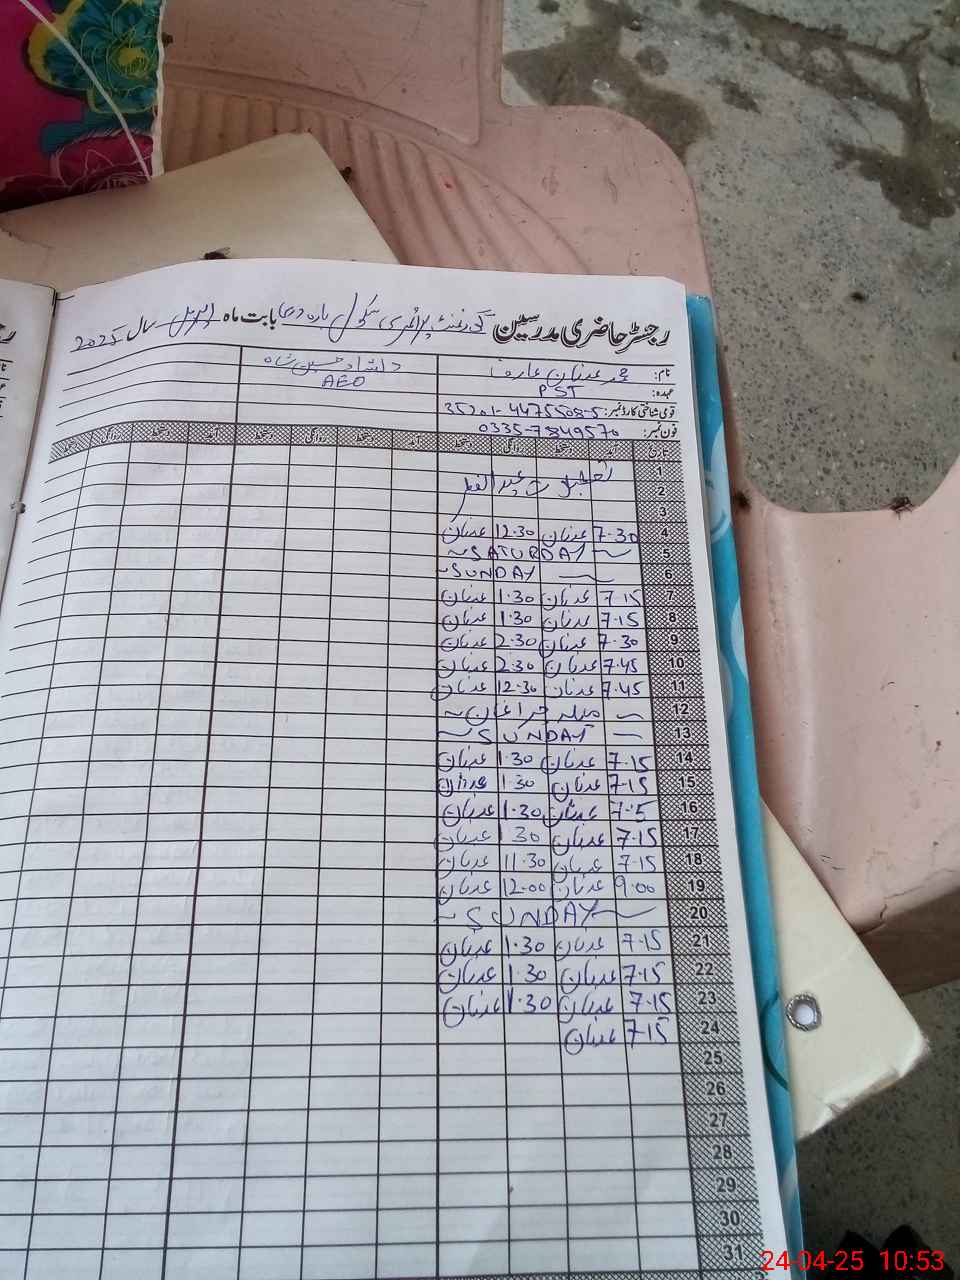 رجسٹر حاضری مدرسین گورنمنٹ پرائمری سکول بارہ دری بابت ماہ اپریل سال 2025
نام: محمد عدنان عارف
عہدہ: PST AEO
قومی شناختی کارڈ نمبر: 35201-4475508-5
فون نمبر: 0335-7849570
تاریخ آمد دستخط روانگی دستخط آمد دستخط روانگی دستخط آمد دستخط روانگی دستخط
1 تعطیلات عید الفطر
2
3
4 7.30 عدنان 12.30 عدنان
5 ~SATURDAY~
6 ~SUNDAY~
7 7.15 عدنان 1.30 عدنان
8 7.15 عدنان 1.30 عدنان
9 7.30 عدنان 2.30 عدنان
10 7.45 عدنان 2.30 عدنان
11 7.45 عدنان 12.30 عدنان
12 ~ میلہ چراغاں ~
13 ~SUNDAY~
14 7.15 عدنان 1.30 عدنان
15 7.15 عدنان 1.30 عدنان
16 عدنان 1.30 عدنان
17 7.15 عدنان 1 30 عدنان
18 7.15 عدنان 11.30 عدنان
19 9.00 عدنان 12.00 عدنان
20 ~SUNDAY~
21 7.15 عدنان 1.30 عدنان
22 7.15 عدنان 1.30 عدنان
23 7.15 عدنان 1.30 عدنان
24 7.15 عدنان
25
26
27
28
29
30
31
24-04-25 10:53